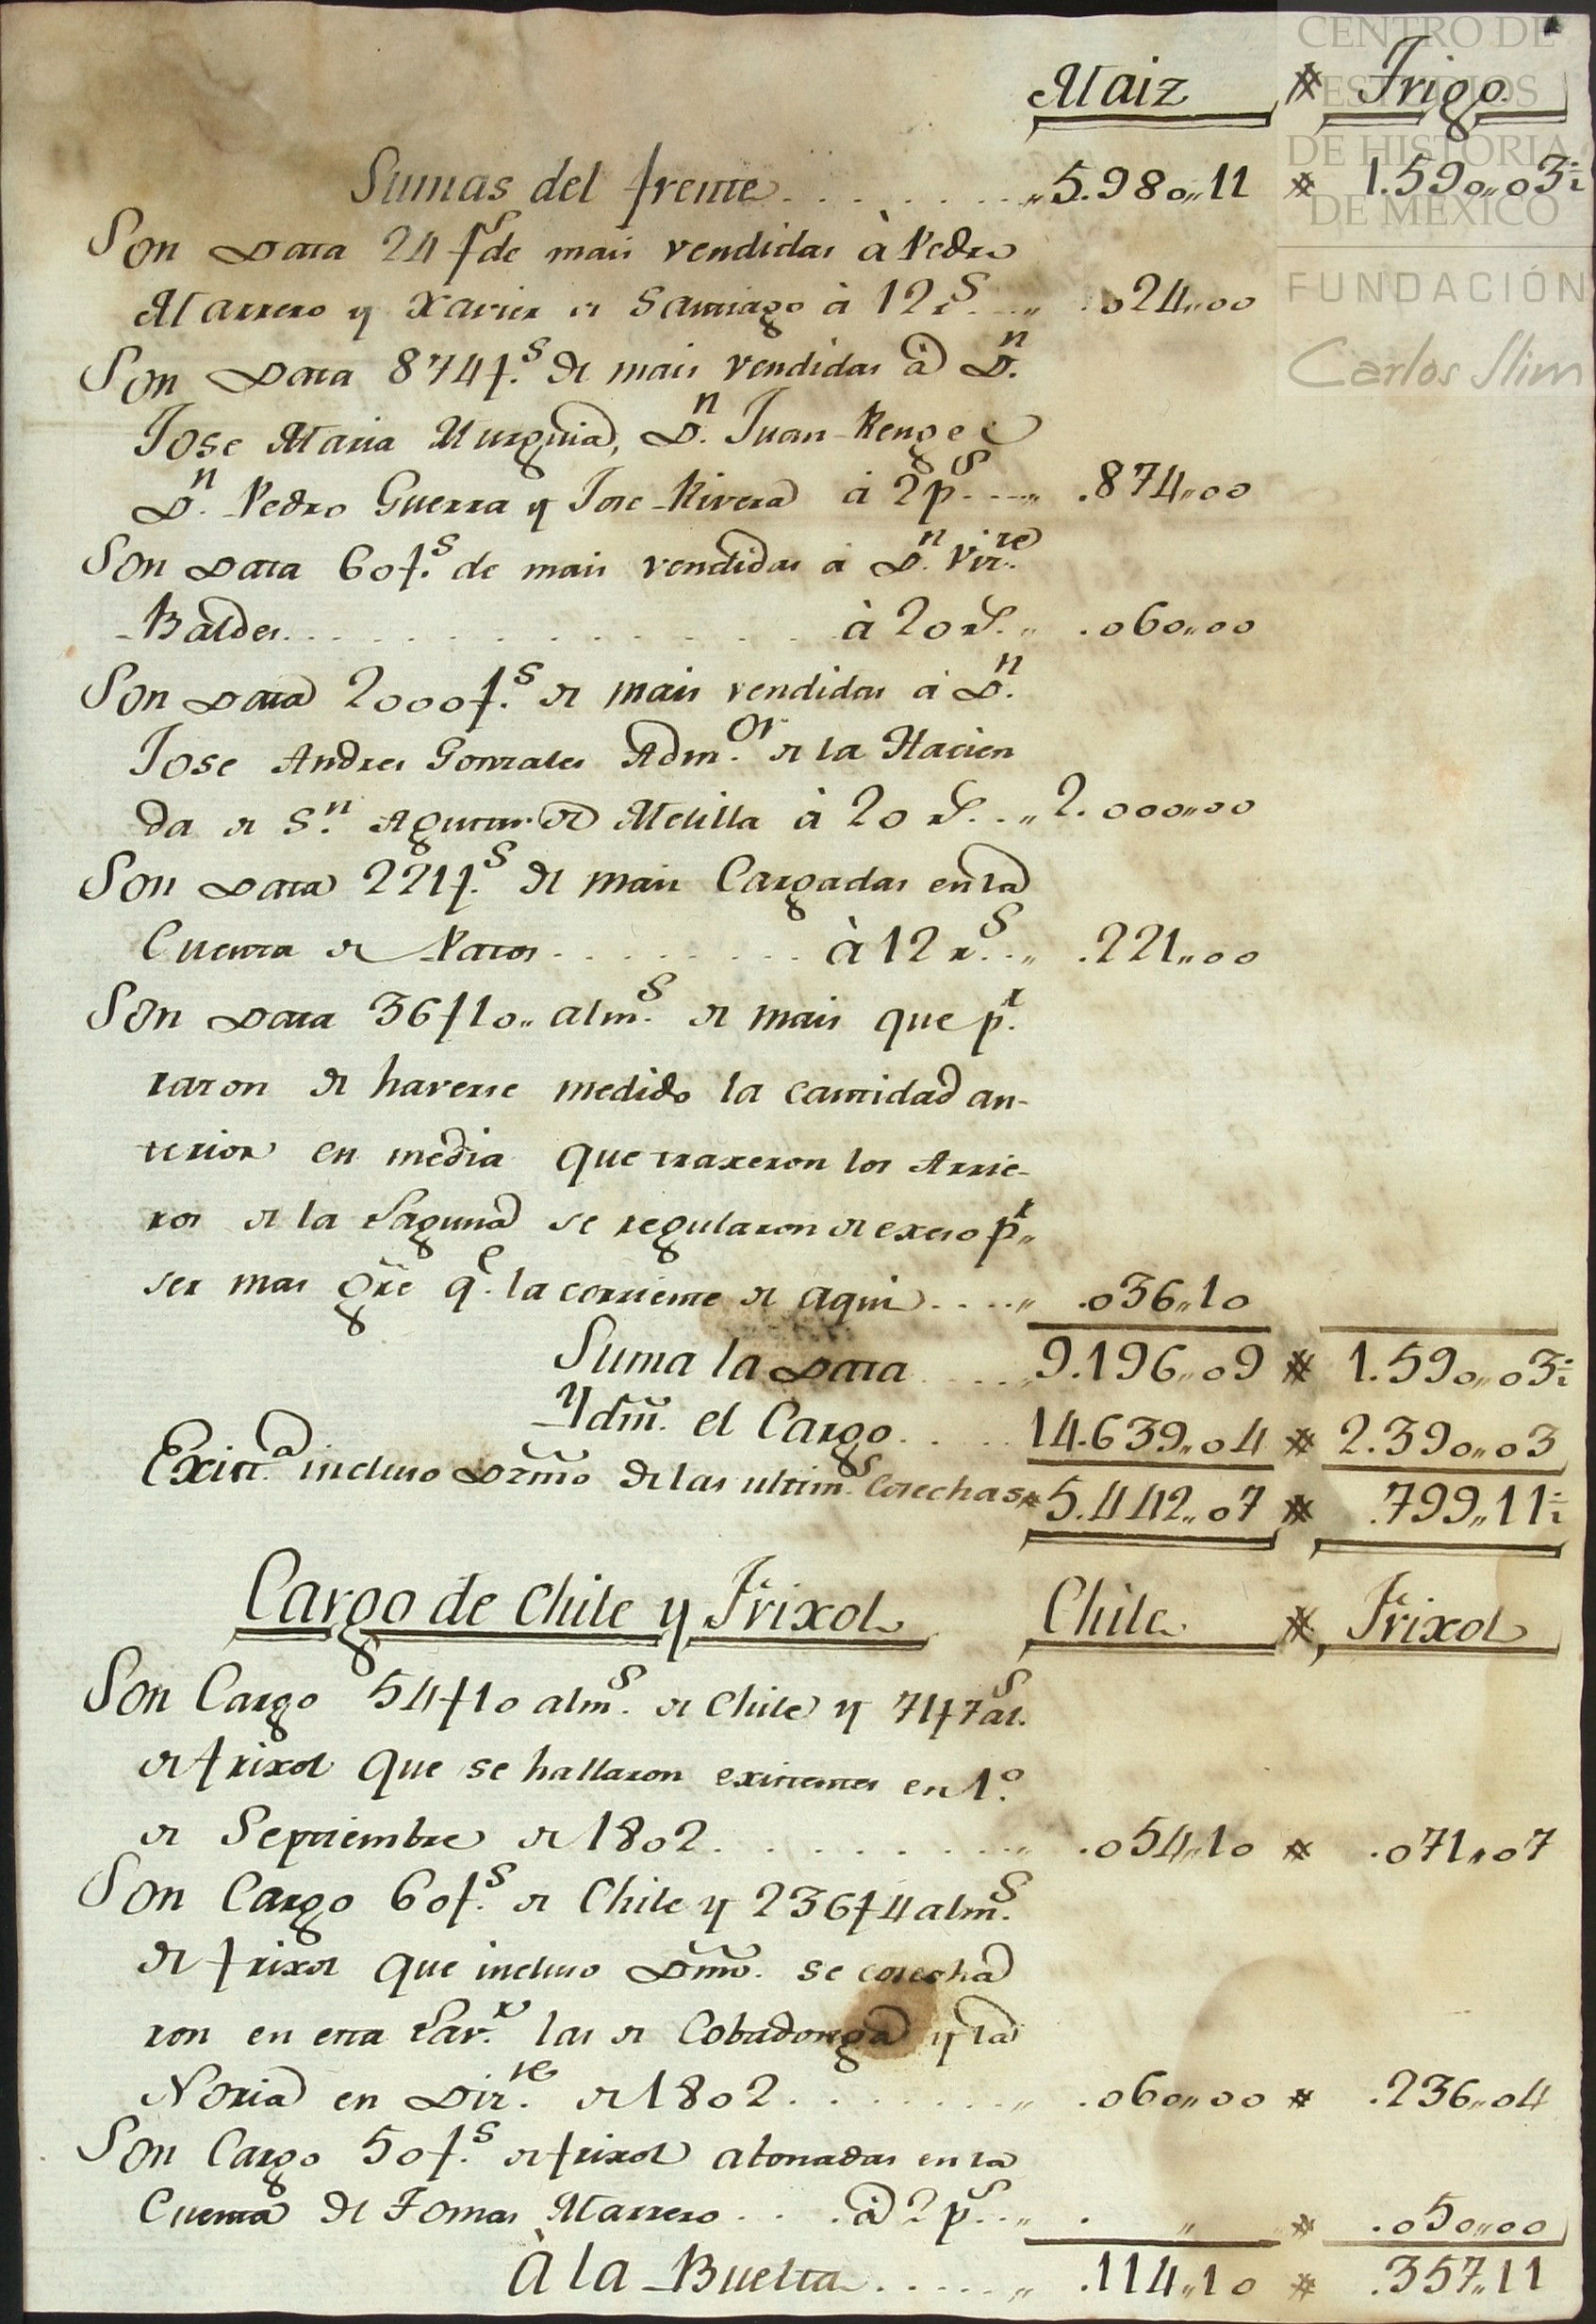 CENTRO DE
ESTUDIOS
DE HISTORIA
DE MÉXICO
FUNDACIÓN
Carlos Slim
Maiz # Trigo
Sumas del frente........,, 5.980,,11 # 1.590,,03½
Son Data 24 f.s de mais vendidas à Pedro
Marrero y Xavier de Santiago à 12 r.s ..,, .024,,00
Son Data 874 f.s de mais vendidas à D.n
Jose Maria Murguia, D.n Juan Renge e
D.n Pedro Guerra y Jose Rivera à 2 p.s ....,, .874,,00
Son Data 60 f.s de mais vendidas à D.n Vir.te
Baldes................ à 20 r.s ,, .060,,00
Son Data 2000 f.s de mais vendidas à D.n
Jose Andres Gonzales Adm.or de la Hacien
da de S.n Agustin de Melilla à 20 r.s ..,, 2.000,,00
Son Data 221 f.s de mais Cargadas en la
Cuenta de Patos......... à 12 r.s ..,, .221,,00
Son Data 36 f 10,, alm.s de mais que p.r
razon de haverse medido la cantidad an-
terior en media que traxeron los Arrie-
ros de la Laguna se regularon de exeso p.r,,
ser mas gre q.e la corriente de aqui....,, .036,,10
Suma la Data ....,, 9.196,,09 # 1.590,,03½
Ydm. el Cargo..... 14.639,,04 # 2.390,,03
Exist.a incluso Dzmo de las ultim.s Cosechas # 5.442,,07 # .799,,11½
Cargo de Chile y Frixol Chile # Frixol
Son Cargo 54 f 10 alm.s de Chile y 71 f 7 al.s
de frixol que se hallaron existentes en 1.º
de Septiembre de 1802.........,, .054,,10 # .071,,07
Son Cargo 60 f.s de Chile y 236 f 4 alm.s
de frixol que incluso Dmo. se cosecha
ron en esta Lav.r las de Cobadonga y la
Noria en Dir.re de 1802........,, .060,,00 # .236,,04
Son Cargo 50 f.s de frixol abonadas en la
Cuenta de Tomas Marrero... à 2 p.s ..,, . ,, # .050,,00
À la Buelta......,, .114,,10 # .357,,11